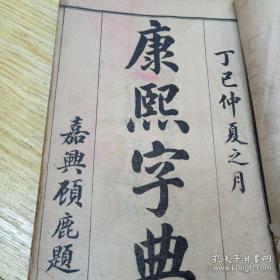 丁巳仲夏之月
康熙字典
嘉興頋鹿題
孔夫子旧书网